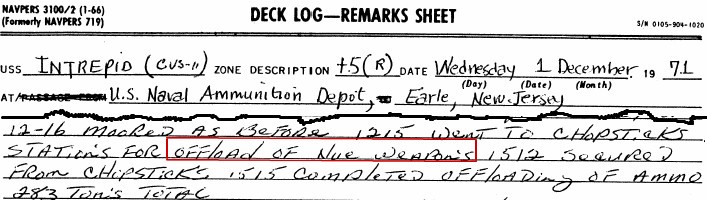 NAVPERS 3100/2 (1-66)
(Formerly NAVPERS 719)
DECK LOG—REMARKS SHEET
S/N 0105-904-1020
USS INTREPID (CVS-11) ZONE DESCRIPTION +5(R) DATE Wednesday 1 December 19 71
(Day) (Date) (Month)
AT/PASSAGE FROM U.S. Naval Ammunition Depot, Earle, New Jersey
12-16 MOORED AS BEFORE 1215 WENT TO CHOPSTICKS
STATIONS FOR OFFLOAD OF NUC WEAPONS 1512 SECURED
FROM CHIPSTICKS, 1515 COMPLETED OFFLOADING OF AMMO
283 TONS TOTAL